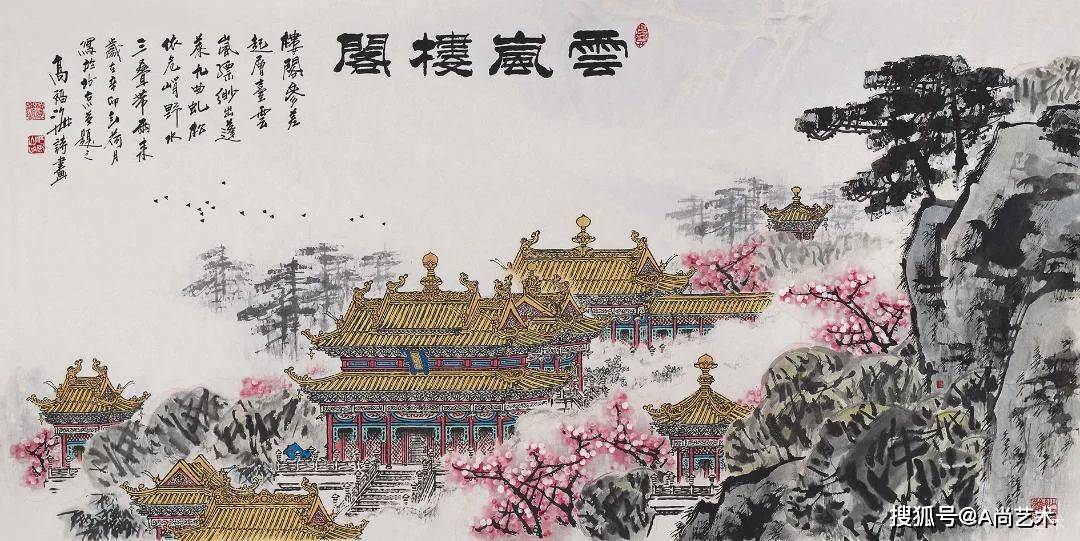 雲嵐樓閣
樓閣參差
起層臺雲
嵐縹緲出蓬
萊九曲虬松
依危峭野水
三疊帶雨來
歲在辛卯荷月
題之
高福海詩畫
搜狐号@A尚艺术